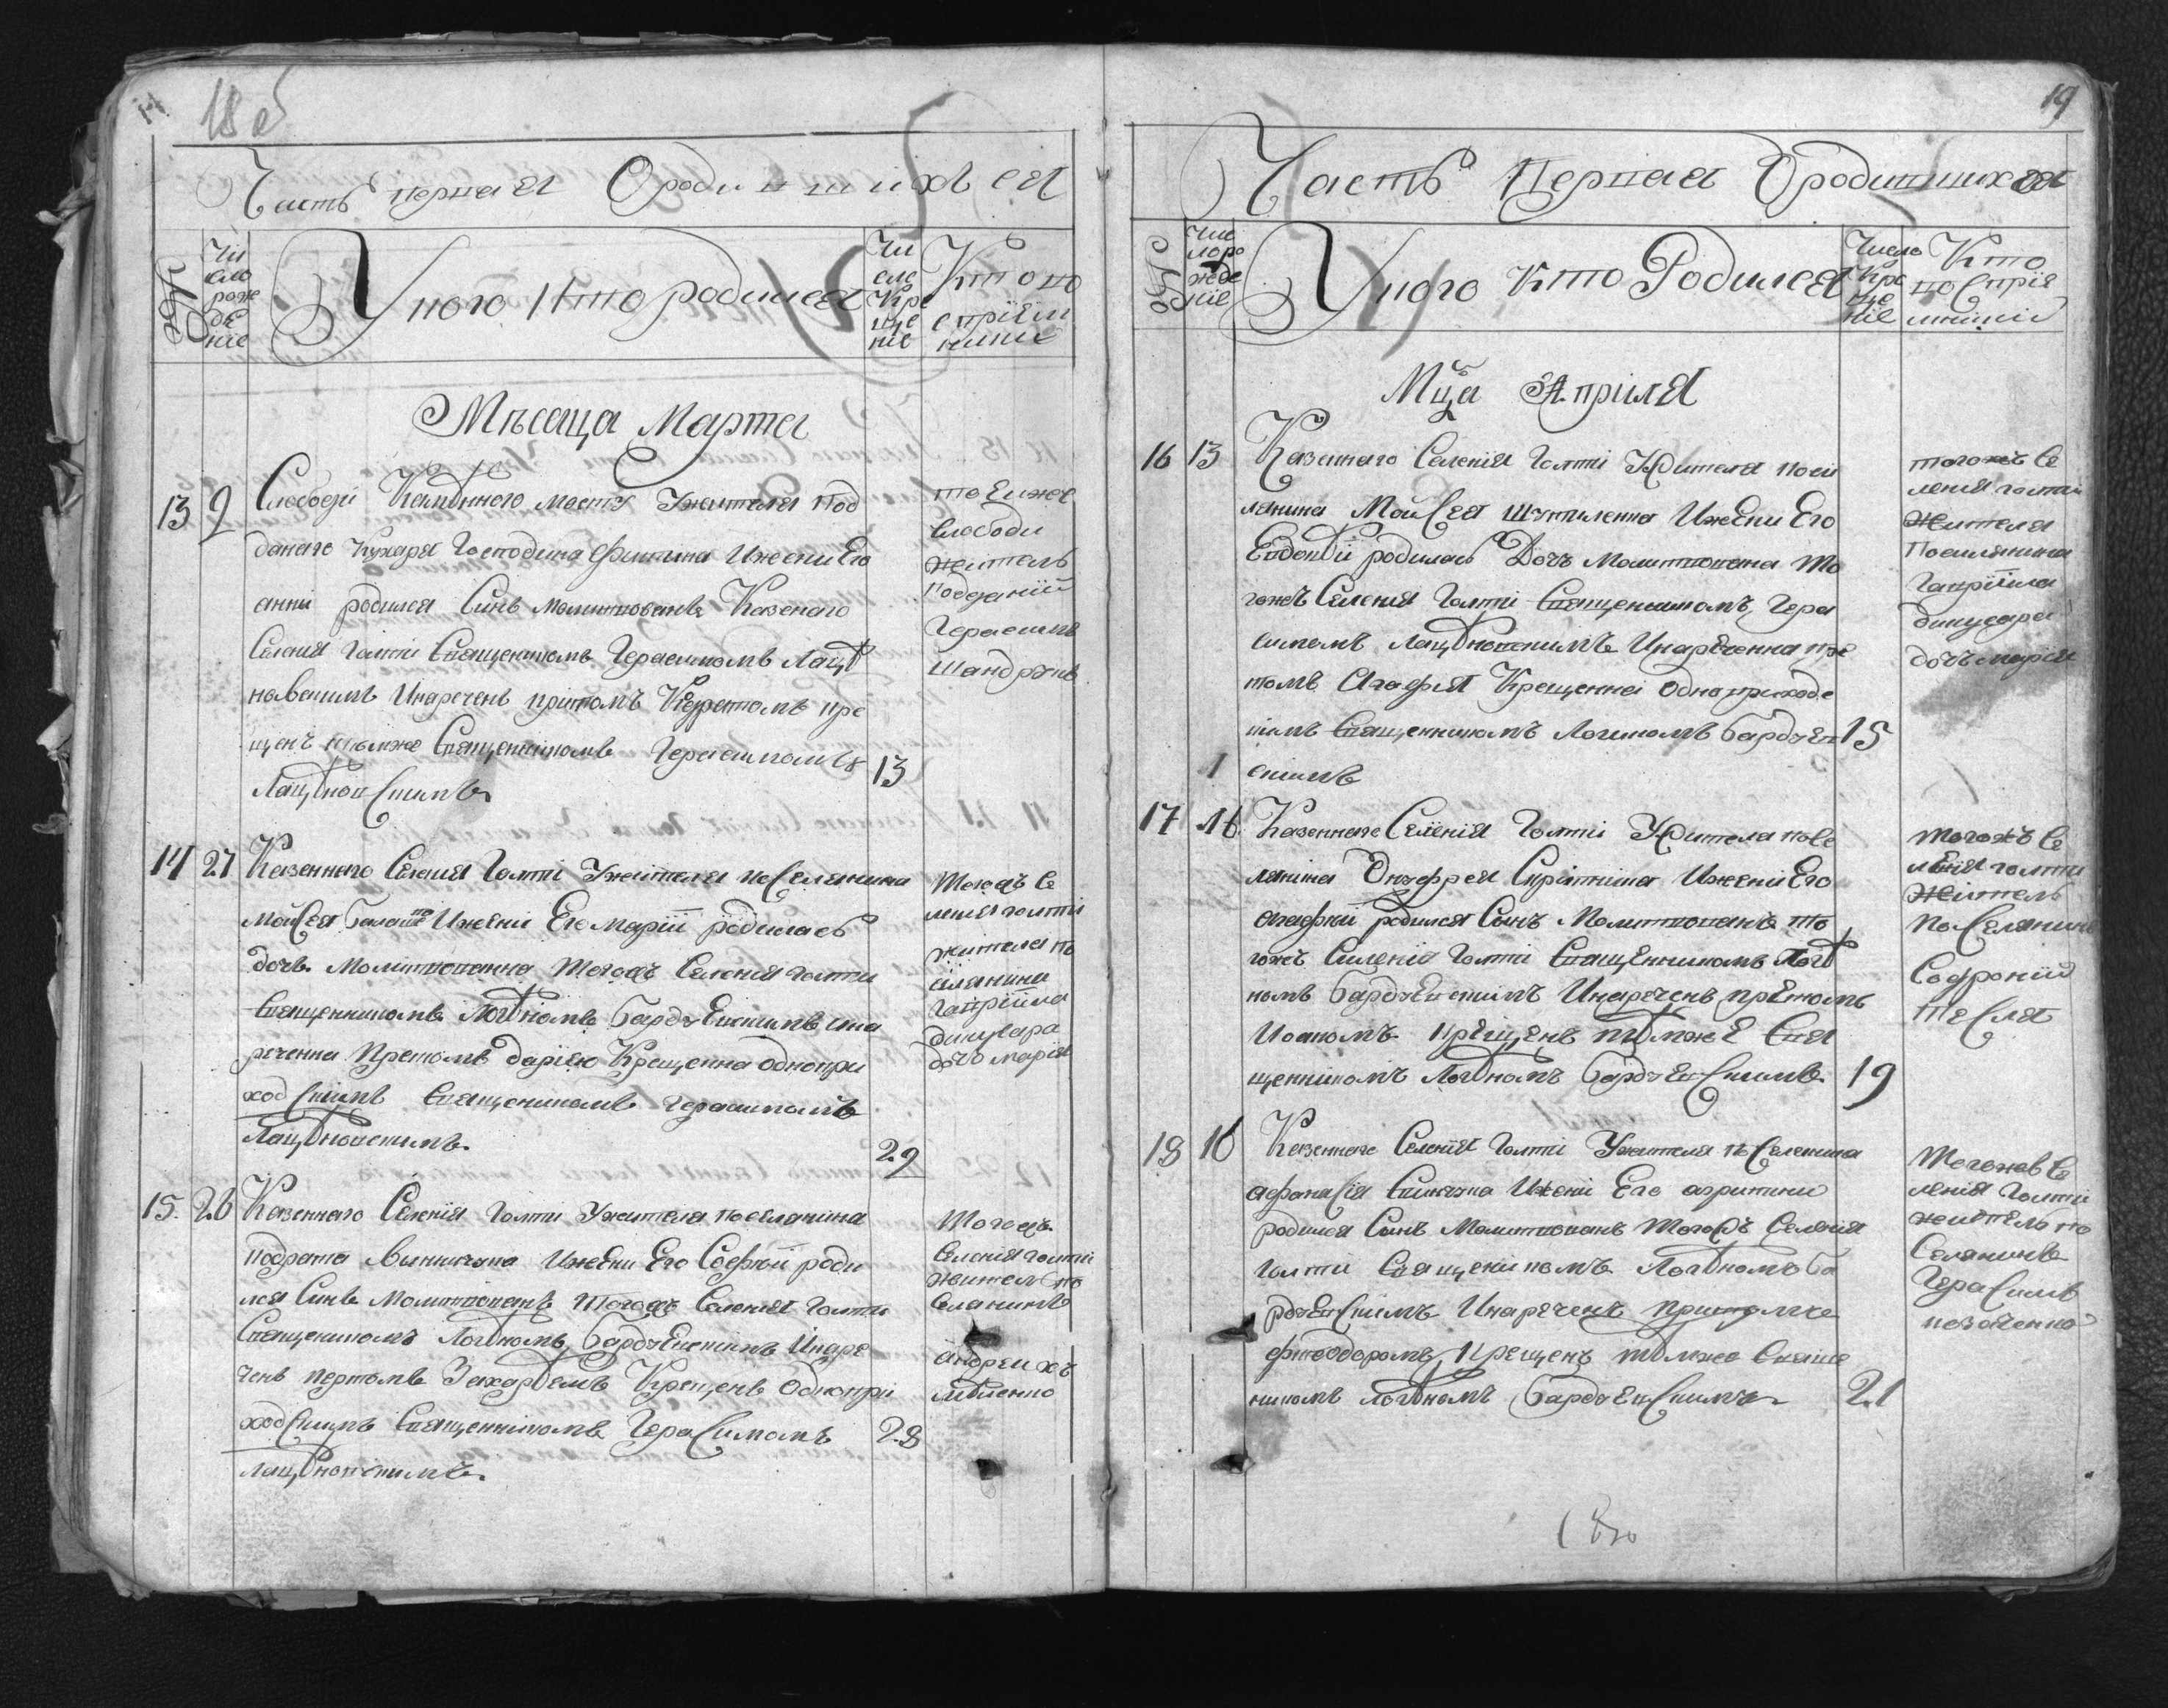 18 об
Часть первая О родившихься
№
Чи
сло
рож
де
ніе
У кого кто родился
Чи
сло
кре
ще
ніе
Кто во
спріем
никъ
Мѣсаца Марта
13 9 Слободи
жителя под
данаго Кухаря Господина Ижени Его
анни родился Синъ молитвованъ Казенаго
Селения Голти Священикомъ Герасимомъ Лаці
новскимъ Инаречень притомъ кре
щенъ тѣмже Священникомъ Герасимомъ 13
Лаціновскимъ
тоеиже
слободи
житель
подданій
Герасимъ
14 27 Казенного Селения Голті Жителя поселянина
Мойсея Ижени Его Маріи родилась
дочь Молитвованна тогожъ Селения голти
Священникомъ Логіномъ Бардзѣевскимъ ина
реченна претомъ дарією Крещенна однопри
ходскимъ Священикомъ Герасимомъ
Лаціновскимъ 29
тогожъ Се
ления голті
жителя по
селянина
гавріила
дочъ марія
15 26 Казенного Селенія Голти Жителя поселянина
Ижени Его Софіи роди
лся Синъ Молитвованъ тогожъ Селения Голти
Священикомъ Логіномъ Бардзѣевскимъ Инаре
ченъ претомъ Захаріемъ Крещенъ Однопри
ходскимъ Священнікомъ Герасимомъ 28
Лаціновскимъ
тогожъ
Селенія голти
житель по
селянинъ
андреи
19
Часть Первая О родившихся
№
Чис
ло ро
жде
ніе
У кого кто Родился
Число
кре
ще
ніе
Кто
воспріе
мникій
Мца Апріля
16 13 Казенного Селенія Голті Жителя посе
лянина Мойсея Ижени Его
Евдокіи родилась Дочъ Молитвована то
гожъ Селения Голті Священникомъ Гера
симомъ Лаціновскимъ Инареченна пре
томъ Агафія Крещенна одноприходс
кимъ Священникомъ Логиномъ Бардзѣев 15
скимъ
тогожъ Се
ления голти
жителя
Поселянина
Гавріила
дочъ марія
17 16 Казенного Селенія Голті Жителя посе
лянина Онуфрея Ижени Его
агафіи родился Синъ Молитвованъ то
гожъ Селенія Голті Священникомъ Логі
номъ Бардзѣевскимъ Инареченъ претомъ
Иоаномъ крещенъ тѣмже Свя
щенникомъ Логіномъ Бардзѣевскимъ 19
тогожъ Се
ления голти
житель
поселянинъ
Софроній
Тесля
18 16 Казенного Селенія Голті Жителя поселянина
афанасія Ижени Его
родился Синъ Молитвованъ тогожъ Селения
Голти Священикомъ Логіномъ Ба
рдзѣевскимъ Инареченъ притомъ
Крещенъ тѣмже Свяще
никомъ Логіномъ Бардзѣевскимъ 21
тогожъ Се
ления Голти
житель по
селянинъ
Герасимъ